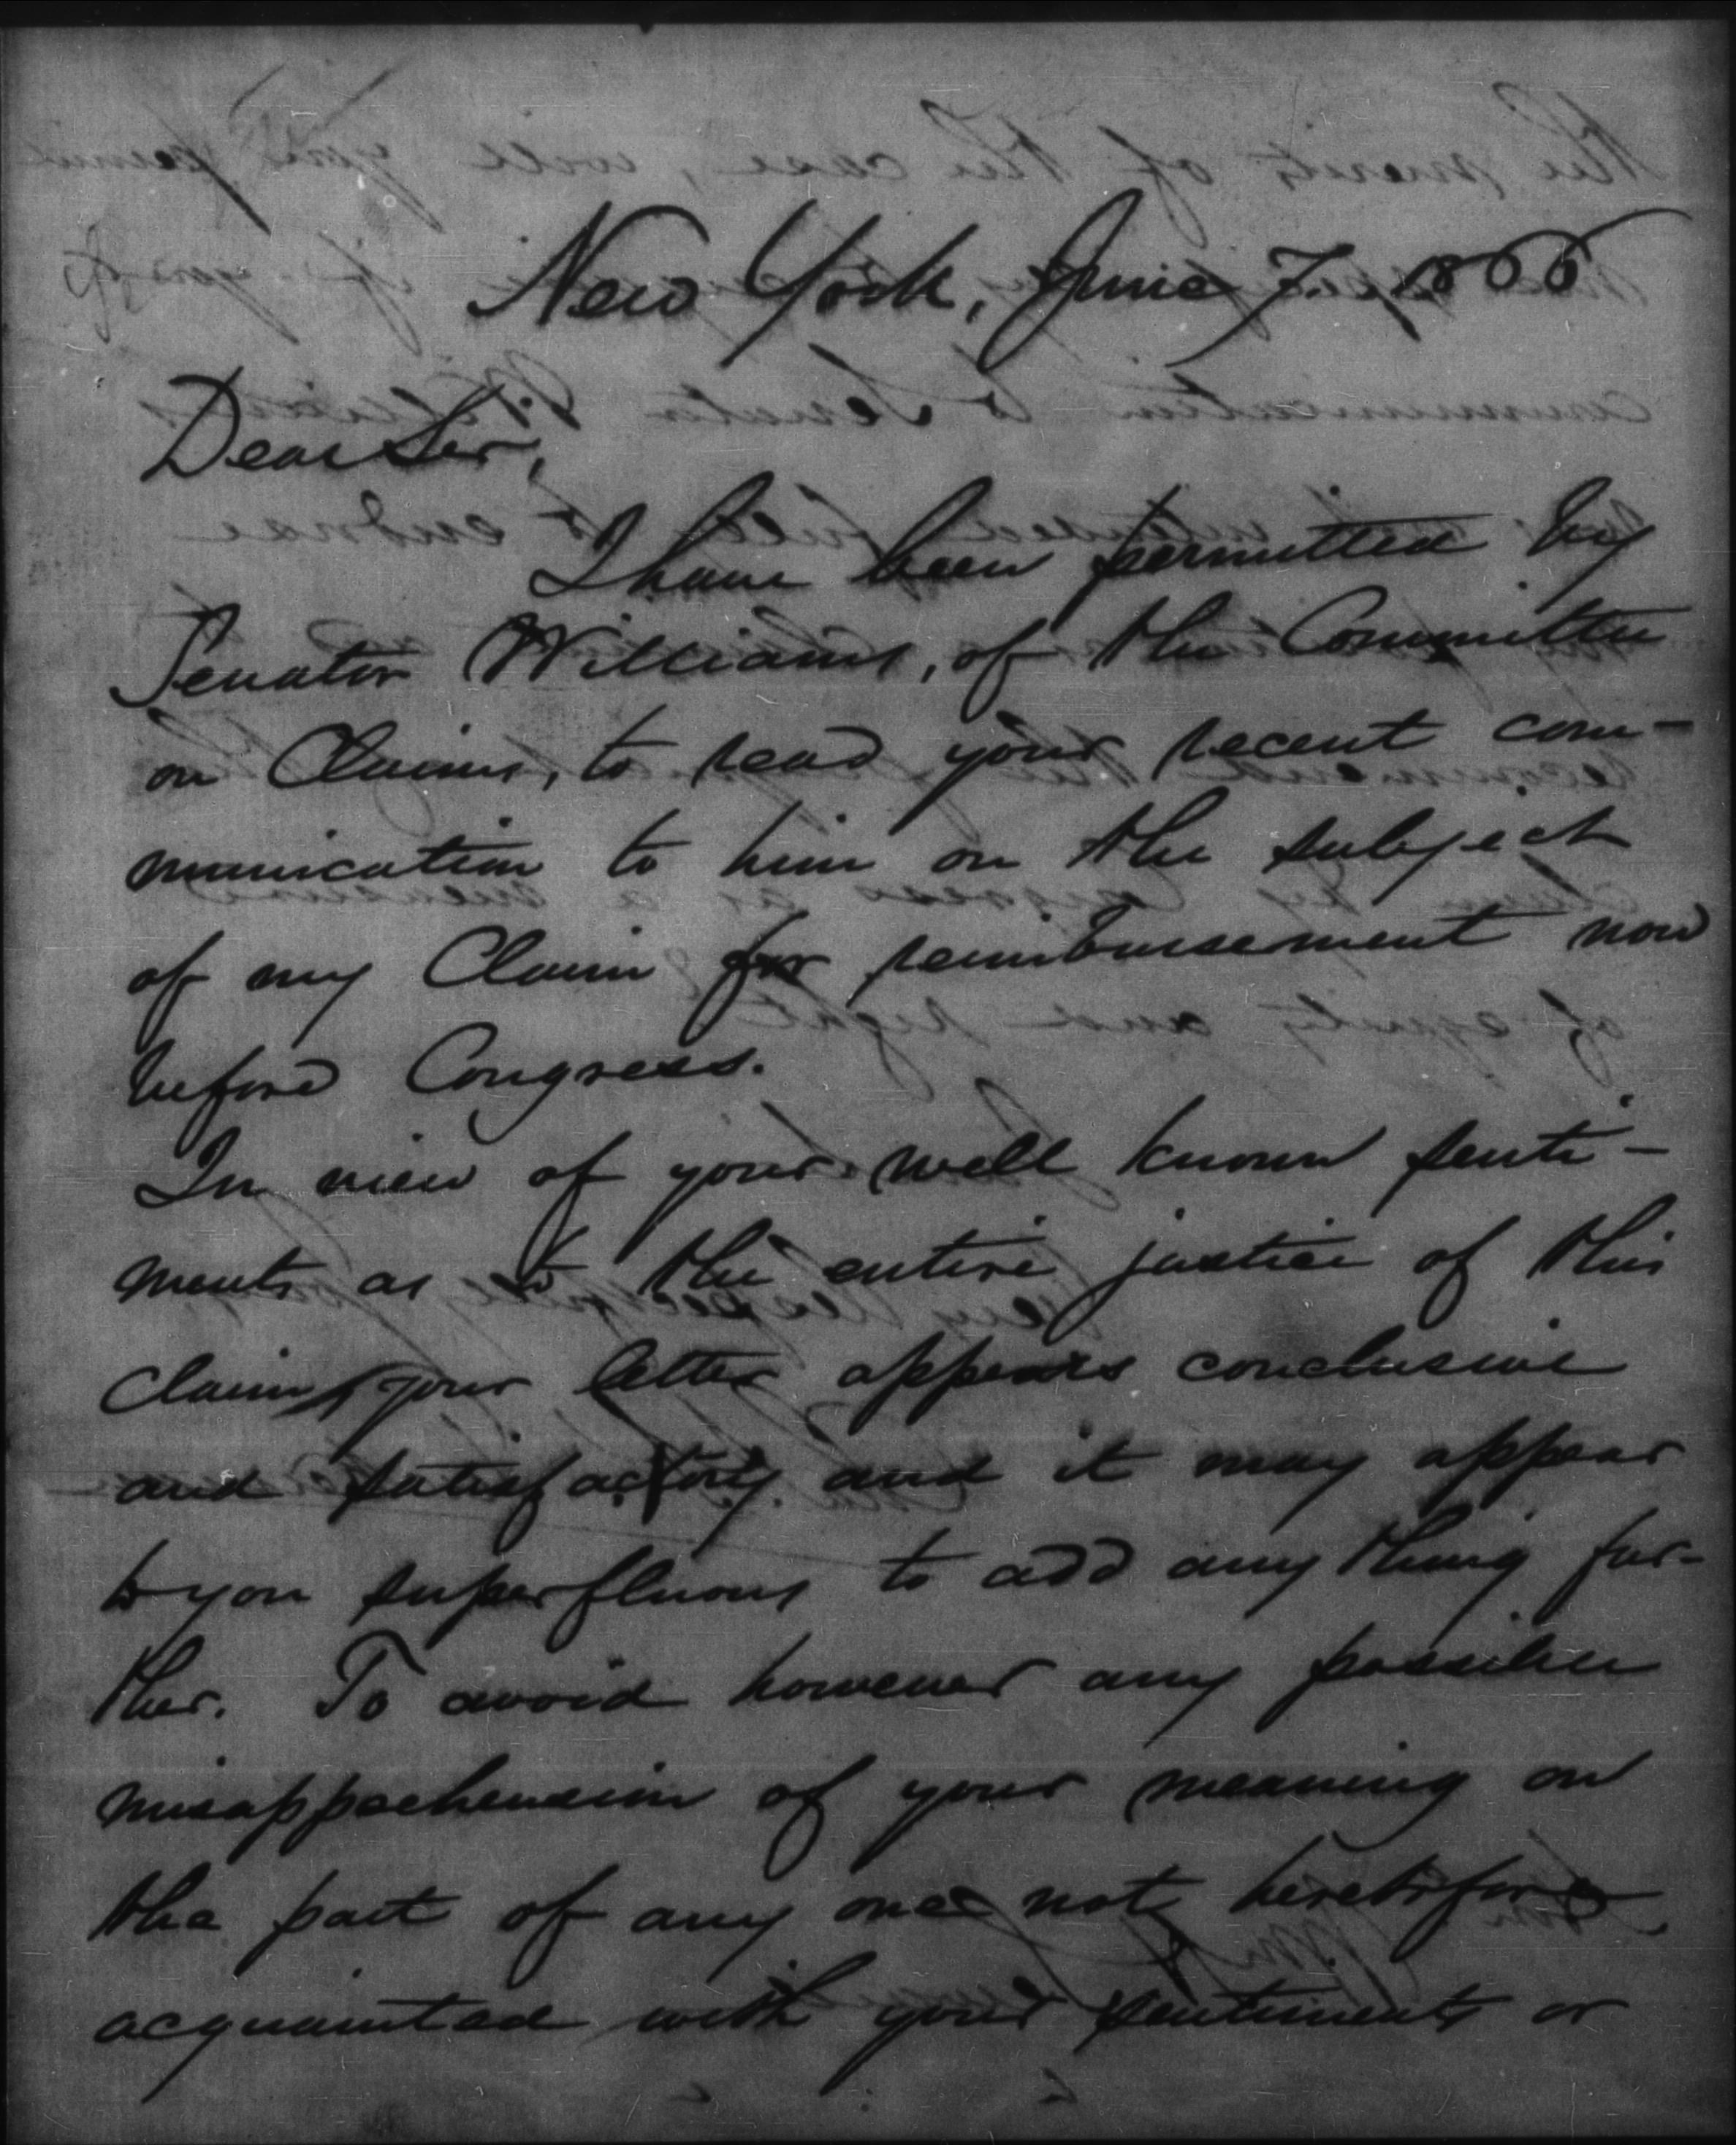 New York, June 7. 1866
Dear Sir,
I have been permitted by
Senator Williams, of the Committee
on Claims, to read your recent com-
munication to him on the subject
of my Claim for reimbursement now
before Congress.
In view of your well known senti-
ments as to the entire justice of this
claim, your letter appears conclusive
and satisfactory and it may appear
to you superfluous to add any thing fur-
ther. To avoid however any possible
misapprehension of your meaning on
the part of any one not heretofore
acquainted with your sentiments or